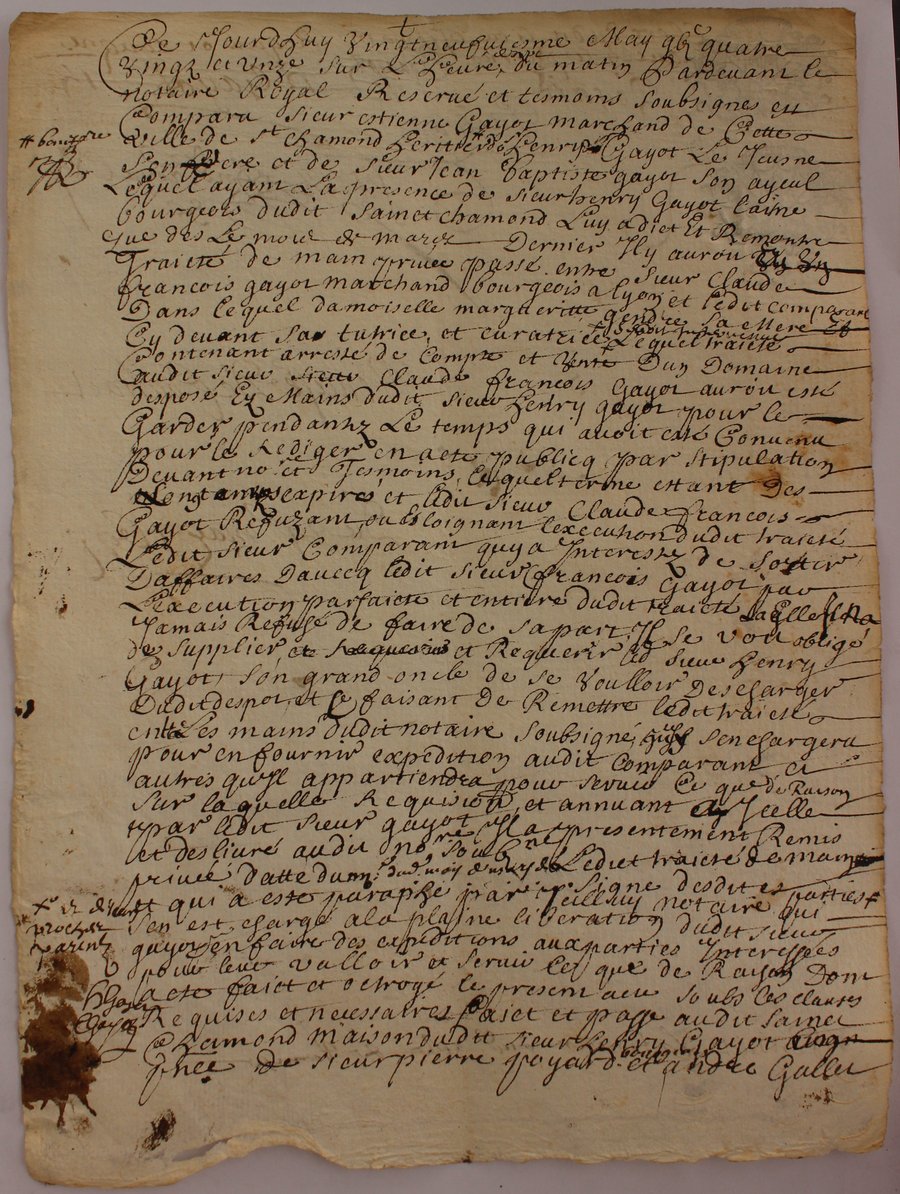 Ce Jourdhuy Vingtneufuiesme May gbc quatre
Vingt et Unze sur L'heure du matin Pardeuant le
notaire Royal Reserué et tesmoins soubsignes eu
Compara sieur estienne Gayot marchand de Cette
ville de st chamond heritier Henry Gayot Le Jeusne
Son frere et de sieur Jean Baptiste gayot son ayeul
Lequel ayant La presence de sieur henry Gayot laine
bourgeois dudit Sainct chamond Luy a dict Et Remontre
que des Le mois de mars Dernier Il y auroit
Traicté de main priuee passé entre sieur Claude
francois gayot marchand bourgeois a lyon et ledit comparant
Dans lequel damoiselle margueritte sa Mere
Cy deuant sa tutrice et curatrice Lequel traicté
Contenant arresté de Compte et Vente Dun Domaine
audit sieur Claude francois Gayot auroit esté
desposé Es Mains dudit sieur Henry gayot pour le
Garder pendant Le temps qui auoit esté Conuenu
pour le Rediger en acte publicq par stipulation
Deuant no.re et Tesmoins, lequel terme estant Des
Longtemps expiré et ledit sieur Claude francois
Gayot Refuzant, ou Esloignant l'execution dudit traicté
Ledit sieur Comparant quy a Interest de sortir
Daffaires Dauecq ledit sieur francois Gayot par
L'execution parfaicte et entiere dudit traicté Laquelle Il na
Jamais Refusé de faire de sa part, Il se voit obligé
de supplier et Requerir led sieur Henry
Gayot son grand oncle de se Voulloir Descharger
Dudit despot, et Ce faisant De Remettre ledit traicté
entre Les mains dudit notaire soubsigné, quy sen chargera
pour en fournir expedition audit Comparant et
autres qu'Il appartiendra pour seruir Ce que de Raison
sur laquelle Requisition, et annuant a Icelle
par ledit sieur gayot Il a presentement Remis
et desliuré audit no.re soub.ne Ledict traicté de main
priuee datte du dud. moy de mars
et qui a esté paraphé par signé desdites parties
sen est chargé a la plaine liberation dudit sieur
gayot en faire des expeditions aux parties Interessees
pour leur valloir et seruir Ce que de Raison Dont
acte faict et octroyé le present soubs les clauses
Requises et necessaires faict et passé audit Sainct
Chamond maison dudit sieur henry Gayot
p.nce De sieur pierre foyard et andre Gallet
et deux
proches
parentz
HGayot
EGayot